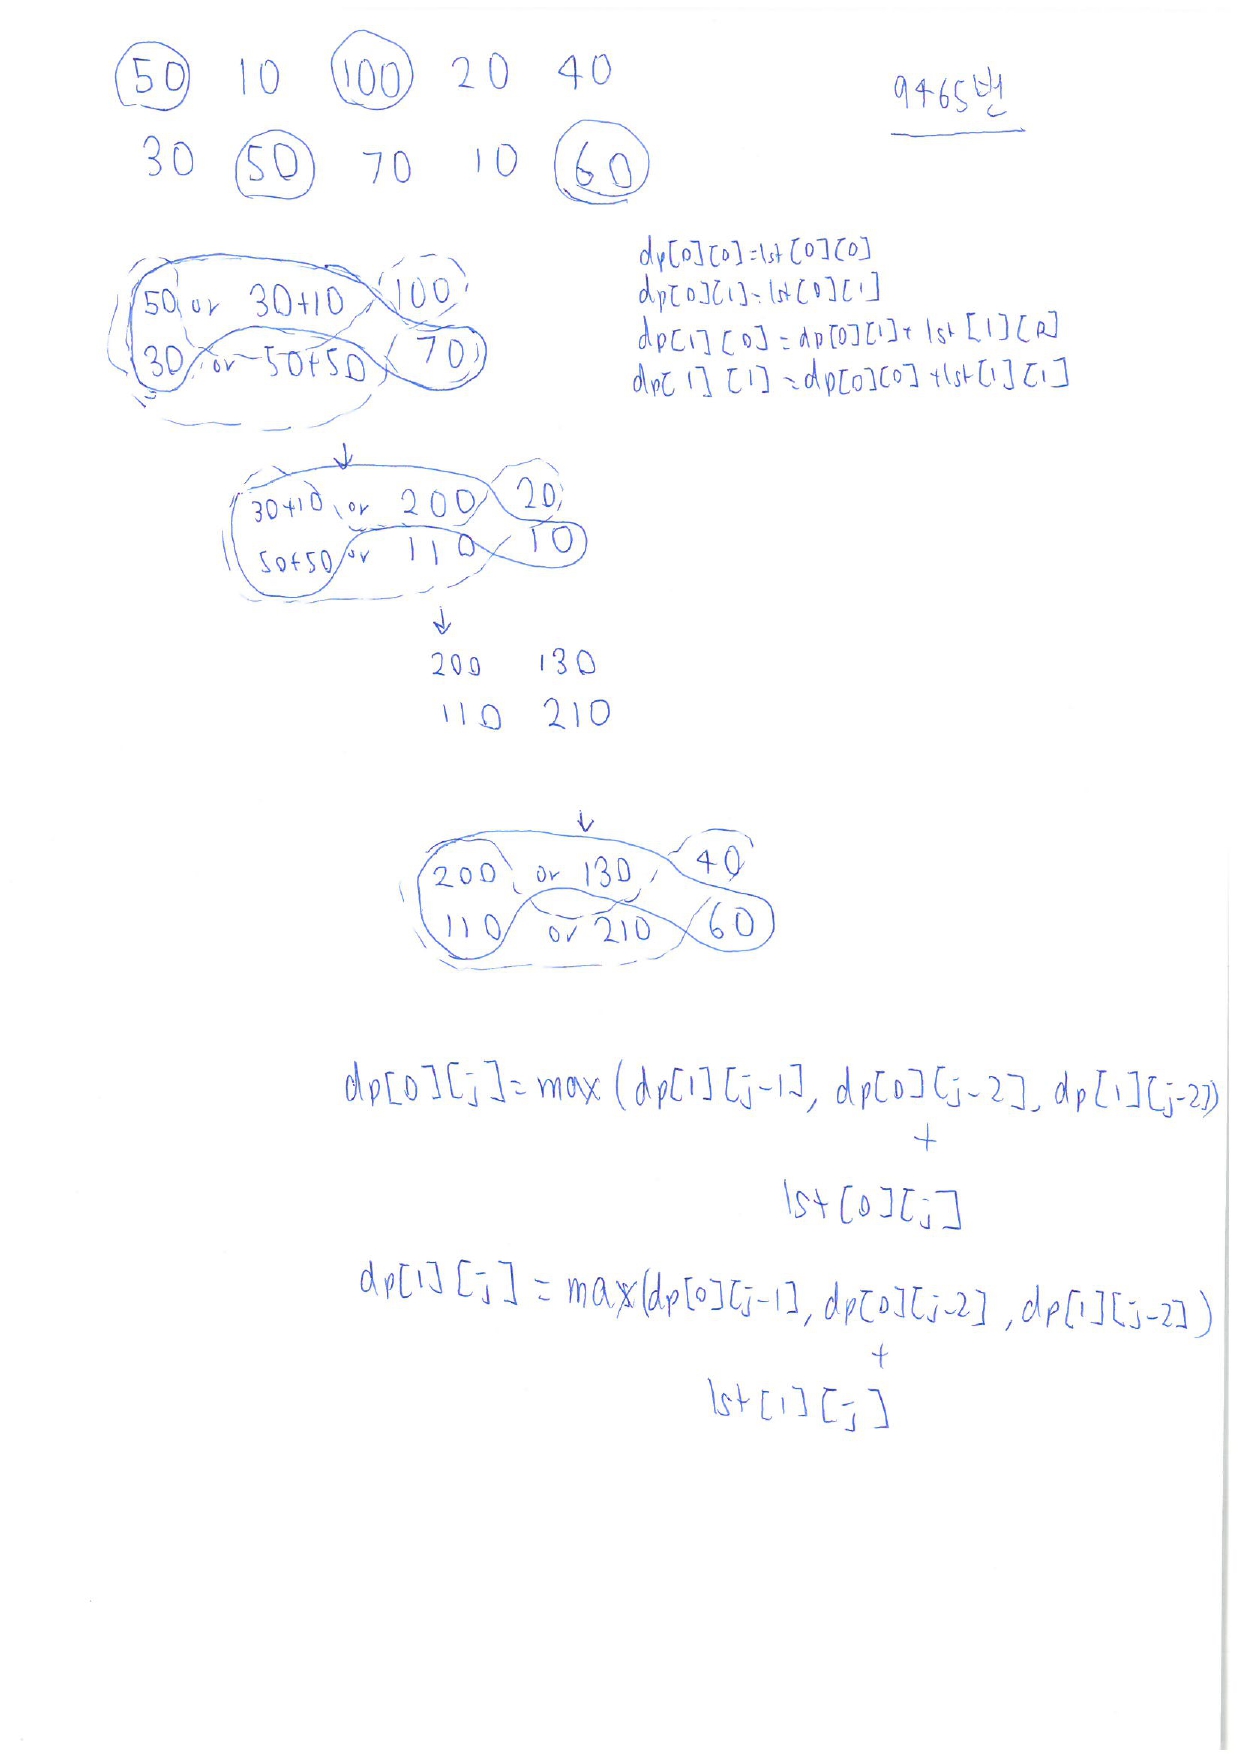 50 10 100 20 40
9465번
30 50 70 10 60
dp[0][0]=lst[0][0]
dp[0][1]=lst[0][1]
dp[1][0]=dp[0][1]+lst[1][0]
dp[1][1]=dp[0][0]+lst[1][1]
50 or 30+10 100
30 or 50+50 70
↓
30+10 or 200 20
50+50 or 110 10
↓
200 130
110 210
↓
200 or 130 40
110 or 210 60
dp[0][j]=max(dp[1][j-1], dp[0][j-2], dp[1][j-2])
+
lst[0][j]
dp[1][j]=max(dp[0][j-1], dp[0][j-2], dp[1][j-2])
+
lst[1][j]